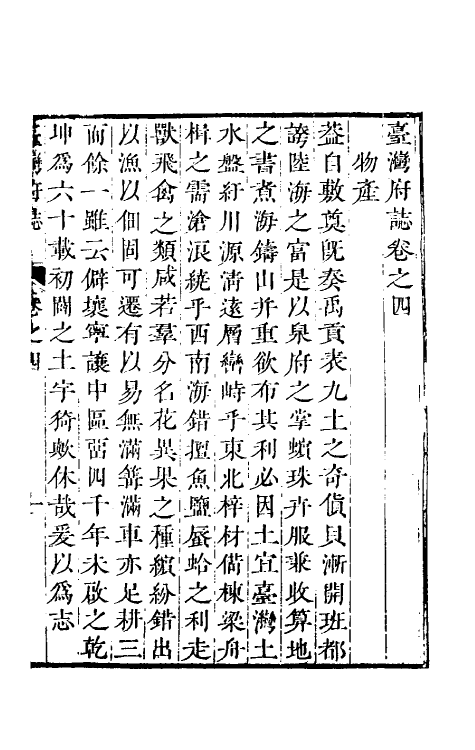 臺灣府誌卷之四
物產
葢自敷奠旣奏禹貢表九土之奇貨貝漸開班都
誇陸海之富是以泉府之掌蠙珠卉服兼收算地
之書煮海鑄山并重欲布其利必因土宜臺灣土
水盤紆川源淸遠層巒峙乎東北梓材備棟梁舟
楫之需滄浪繞乎西南海錯擅魚鹽蜃蛤之利走
獸飛禽之類咸若羣分名花異果之種繽紛錯出
以漁以佃固可遷有以易無滿篝滿車亦足耕三
而餘一雖云僻壤寧讓中區啚四千年未啟之乾
坤爲六十載初闢之土宇猗歟休哉爰以爲志
臺灣府誌
卷之四
一